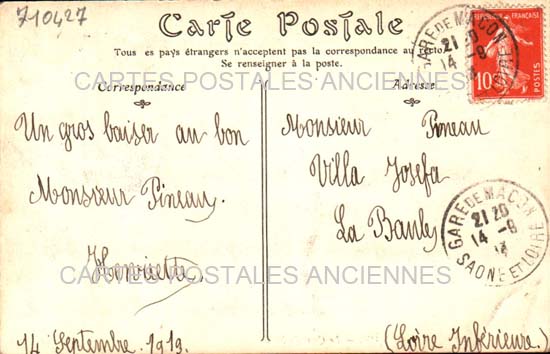 710427
Carte Postale
Tous es pays étrangers n'acceptent pas la correspondance au recto
Se renseigner à la poste.
CARTES POSTALES ANCIENNES
Correspondance
Adresse
Un gros baiser au bon
Monsieur Pineau.
Henriette
14 Septembre 1913.
Monsieur Pineau
Villa Josefa
La Baule
(Loire Inférieure.)
CARTES POSTALES ANCIENNES
REPUBLIQUE FRANÇAISE
10
POSTES
GARE DE MACON
21 20
14 -9
GARE DE MACON
21 20
14 -9
13
SAONE ET LOIRE